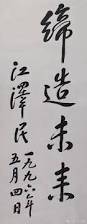 缔造未来
江泽民
一九九六年
五月四日